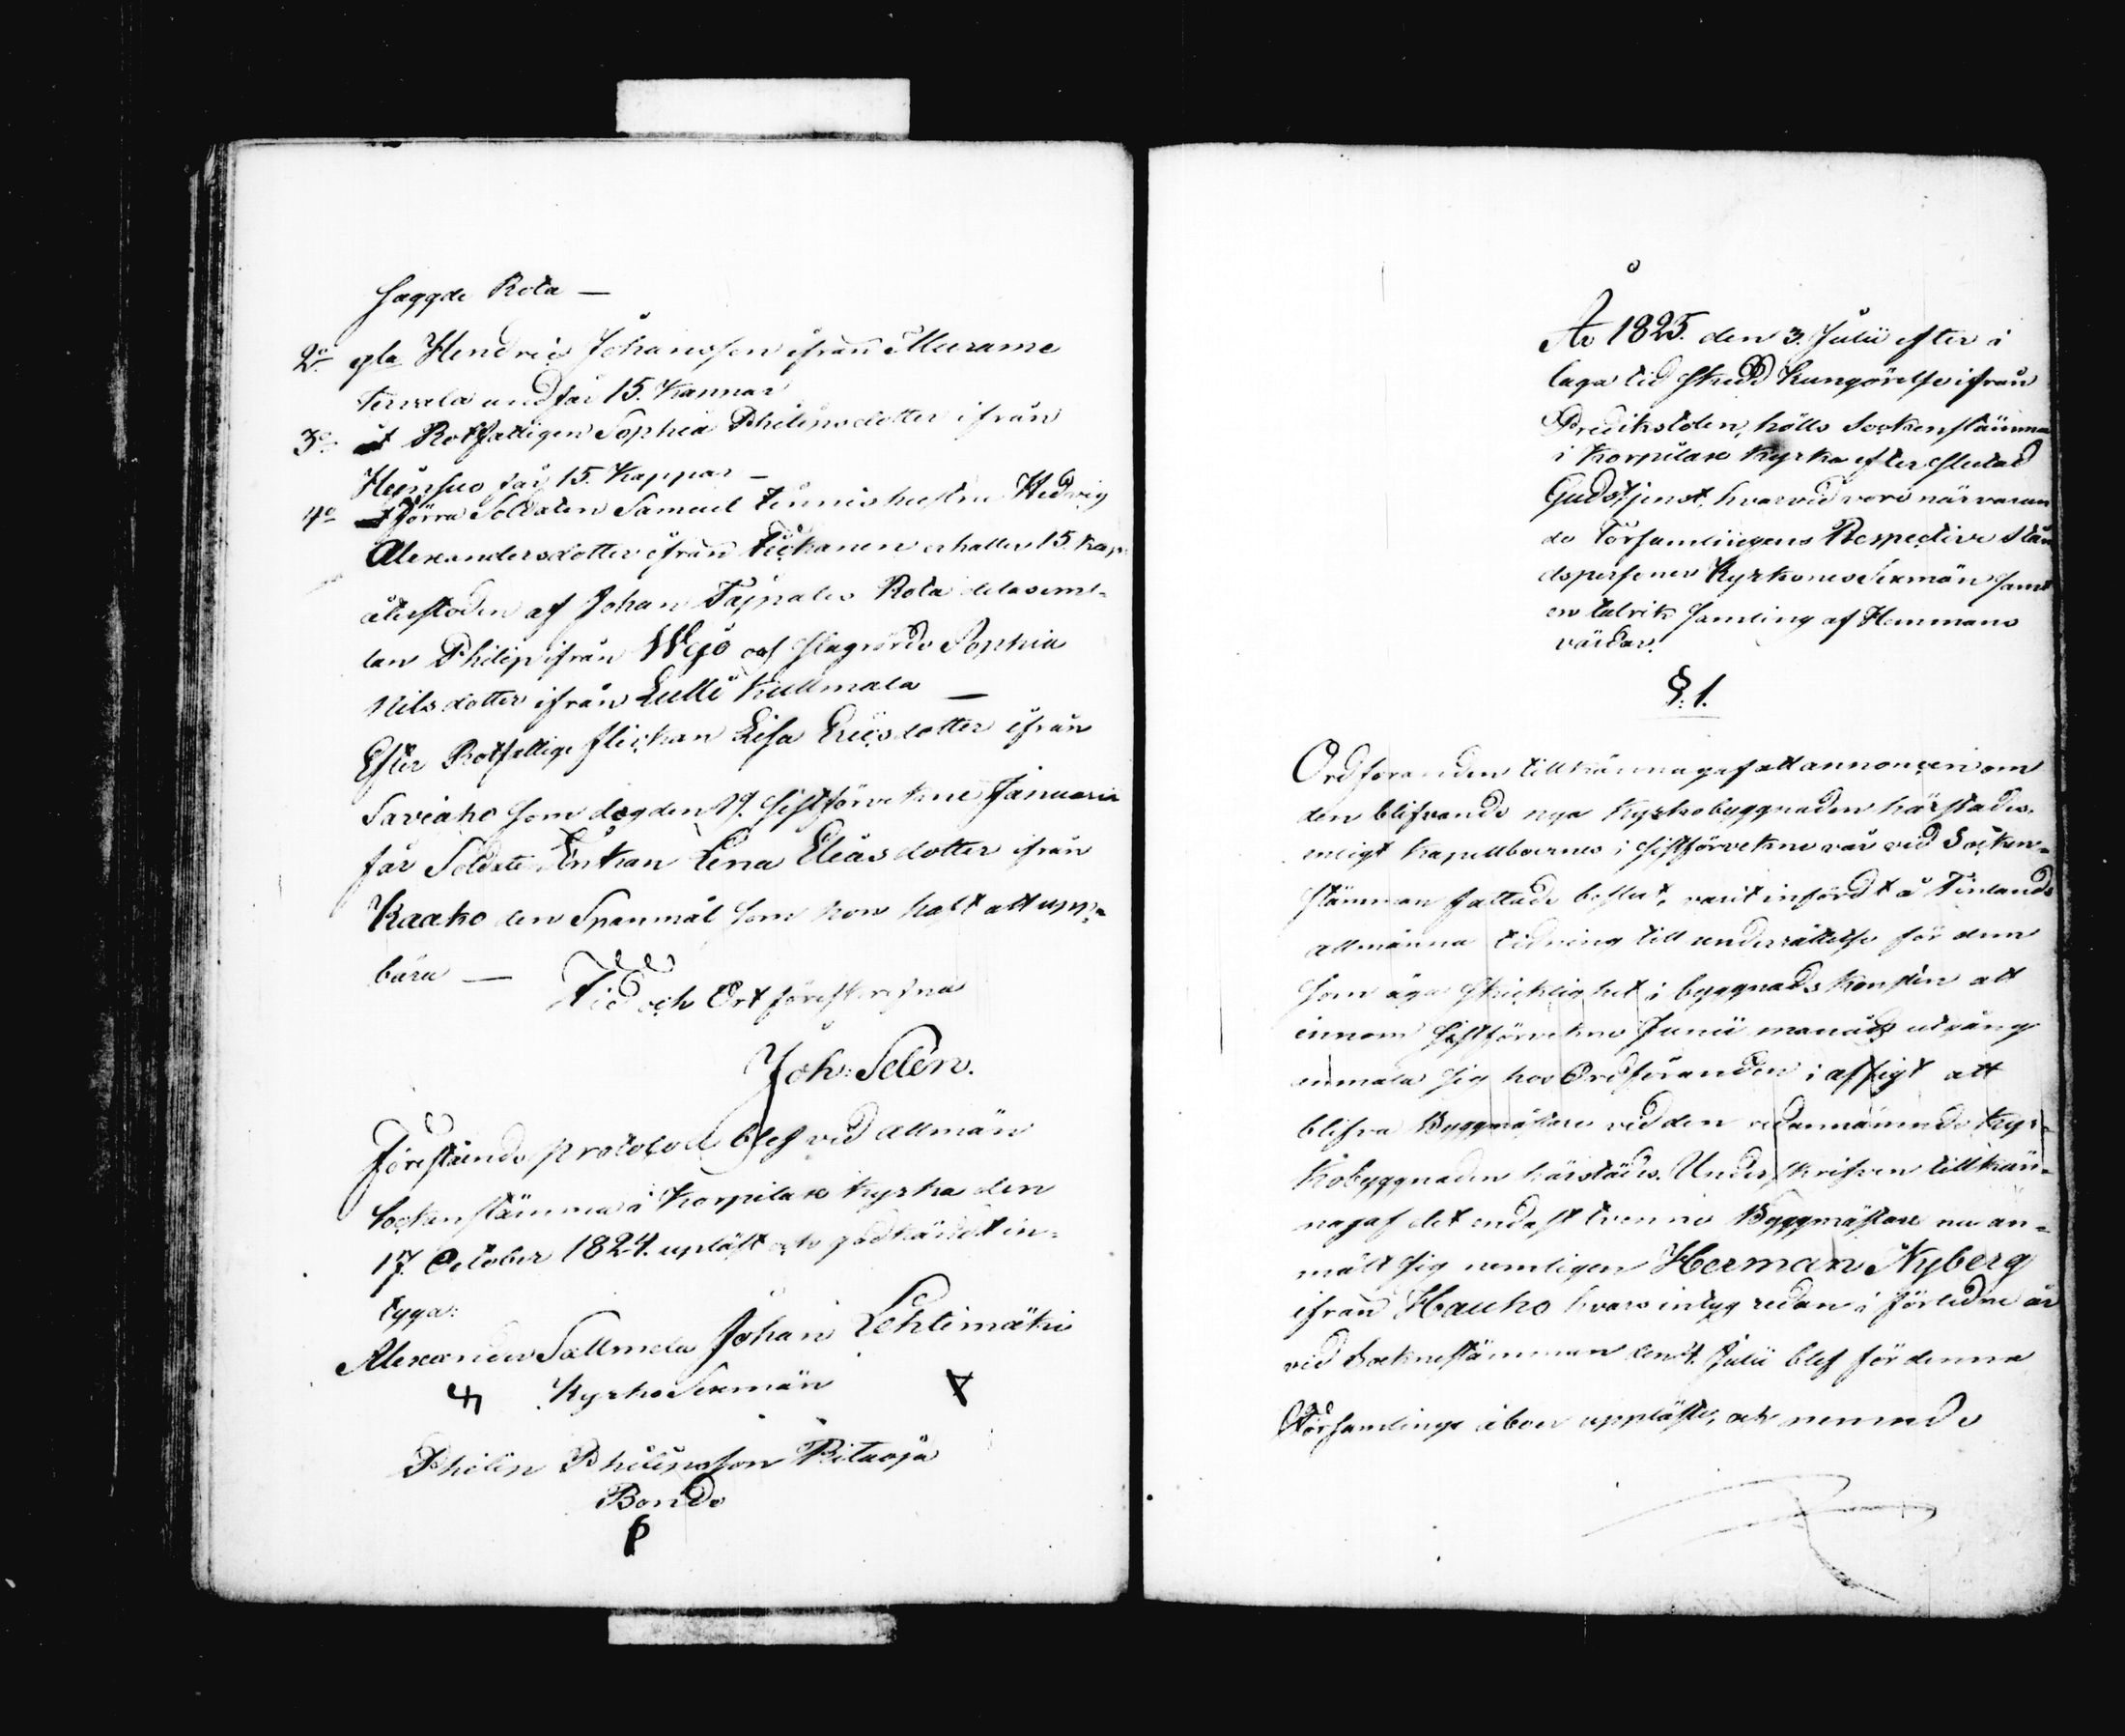 saggde Rota —
2o gla Hendric Johansson ifrån Muurame
Tervala undfår 15. Kannar
3o Rotfattigen Sophia Philipsdotter ifrån
Heinsuo får 15. Kappar —
4o förra Soldaten Samuel Tennis hustru Hedvig
Alexandersdotter ifrån Tickanen erhaller 15 Kap:
älieftoden af Johan Tajpales Rota
lan Philip ifrån Wejo och Sophia
Nilsdotter ifrån Lulli Kullmala —
Efter Rotfattige flickan Lisa Ericsdotter ifrån
Saviaho som dog den 19. sistförvekne Januarii
får Soldate Enkan Lena Eleasdotter ifrån
Kaako den Spanmål som hon haft att upp-
bära — Tid och Ort föreskrefne
Joh: Selén.
Förestående protocoll blef vid allmän
Sockenstämma i Korpilax Kyrka den
17. October 1824. upläst och godkändt in-
tyga:
Alexander Sallmela Johan Lehtimäki
Kyrko Sexmän
Philip Philipsson Ritaoja
Bonde
År 1825. den 3. Julii efter i
laga tid skedd Kungörelse ifrån
Predikstolen, hölls Sockenstämma
i Korpilax Kyrka efter slutad
Gudstjenst, hvarvid voro närvaran
de Församlingens Respective Stån
dspersoner Kyrkones Sexmän samt
en talrik samling af Hemmans
värdar.
§. 1.
Ordföranden tillkännagaf att annoncen om
den blifvande nya Kyrkobyggnaden härstädes,
enligt Kapellboernes i sistförvekne vår vid Socken-
stämman fattade beslut, varit infördt i Finlands
allmänna tidning till underrättelse för dem
som äga skicklighet i byggnads konsten att
innom sistförvekne Junii manads utgång
anmäla sig hos Ordföranden i afsigt att
blifva Byggmästare vid den redannämnde Kyr-
kobyggnaden härstädes. Underskrifven tillkän-
nagaf det endast tvenne Byggmästare nu an-
mält sig nemligen Herman Nyberg
ifrån Hauho hvars intyg redan i förledne år
vid Socknestämman den 4. Julii blef för denna
Församlings åboer uppläste, och nemnde